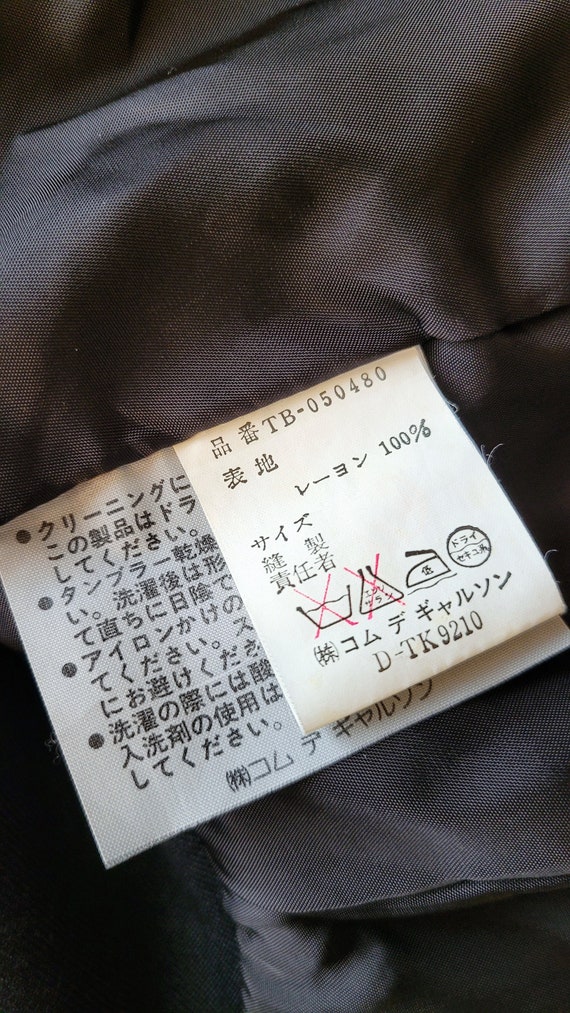 品番TB-050480
表地
レーヨン 100%
サイズ
縫製
責任者
エンソ
サラシ
低
ドライ
セキユ系
㈱コム デ ギャルソン
D-TK9210
●クリーニングに
この製品はドラ
してください。
●タンブラー乾燥
て、洗濯後は形
直ちに日陰で
●アイロンかけの
てください。ス
にお避けくださ
●洗濯の際には酸
入洗剤の使用は
してください。
㈱コム デ ギャルソン